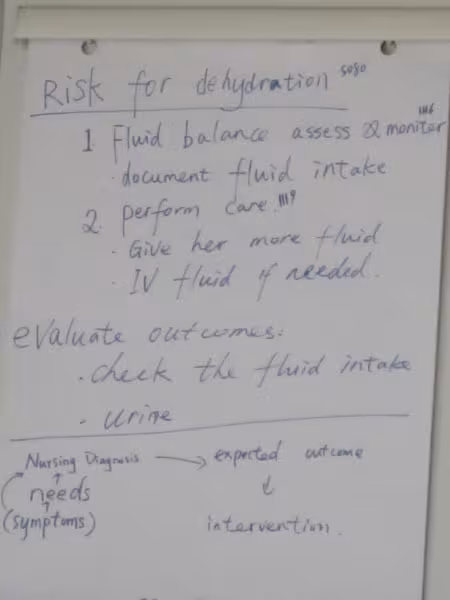 Risk for dehydration 5080
1 Fluid balance assess & monitor 1116
· document fluid intake
2. perform care. 1119
· Give her more fluid
· IV fluid if needed.
evaluate outcomes:
· check the fluid intake
· urine
Nursing Diagnosis → expected outcome
↑ ↓
needs
↑
(symptoms) intervention.